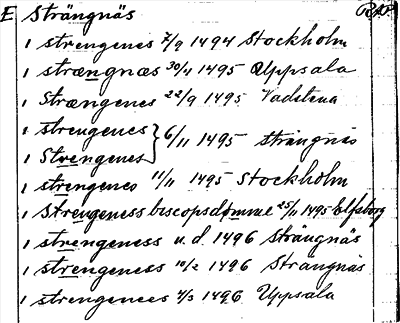 E Strängnäs RAP
ı strengenes 7/9 1494 Stockholm
ı strængnæs 30/1 1495 Uppsala
ı Strængenes 22/9 1495 Vadstena
ı strengenes } 6/11 1495 strängnäs
ı Strengenes
ı strengenes 11/11 1495 Stockholm
ı Strengeness biscopsdømme 25/11 1495 Elfsborg
ı strengeness u.d. 1496 Strängnäs
ı strengeness 10/2 1496 Strängnäs
ı strengenees 4/3 1496 Uppsala